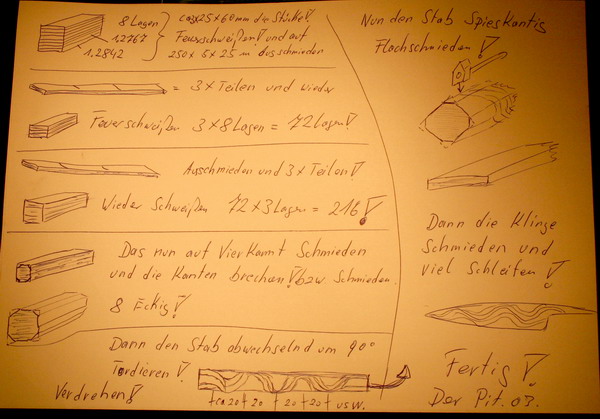 8 Lagen
1.2767
1.2842
ca 25x60mm die Stücke!
Feuerschweißen! und auf
250 x 5 x 25 m ausschmieden
= 3x Teilen und wieder
Feuerschweißen 3x8 Lagen = 72 Lagen!
Ausschmieden und 3x Teilen!
Wieder Schweißen 72x3 Lagen = 216!
Das nun auf Vierkannt Schmieden
und die Kanten brechen! bzw Schmieden.
8 Eckig!
Dann den Stab abwechselnd um 90°
Tordieren!
Verdrehen!
ca 20 + 20 + 20 + 20 + usw.
Nun den Stab Spieskantig
Flachschmieden!
Dann die Klinge
Schmieden und
viel Schleifen!
Fertig!
Der Pit. 03.